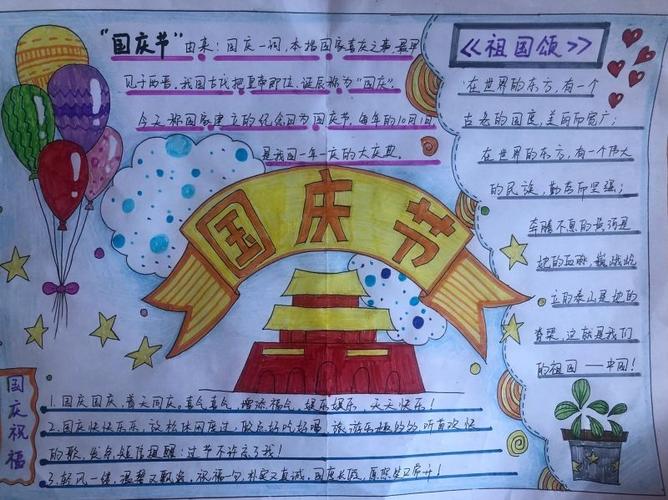 "国庆节"由来：国庆一词，本指国家喜庆之事，最早
见于西晋。我国古代把皇帝即位、诞辰称为"国庆"。
今天称国家建立的纪念日为国庆节，每年的10月1日
是我国一年一度的大庆典。
国庆节
《祖国颂》
在世界的东方，有一个
古老的国度，美丽而宽广；
在世界的东方，有一个伟大
的民族，勤劳而坚强；
奔腾不息的黄河是
她的血脉，巍峨屹
立的泰山是她的
脊梁，这就是我们
的祖国——中国！
国庆祝福
1.国庆国庆，普天同庆，喜气喜气，增添福气，娱乐娱乐，天天快乐！
2.国庆快快乐乐，放松休闲度过，
的歌，发条短信提醒：过节不许忘了我！
3.轻风一缕，温馨又飘逸，祝福一句，朴实又真诚，国庆长假，愿您